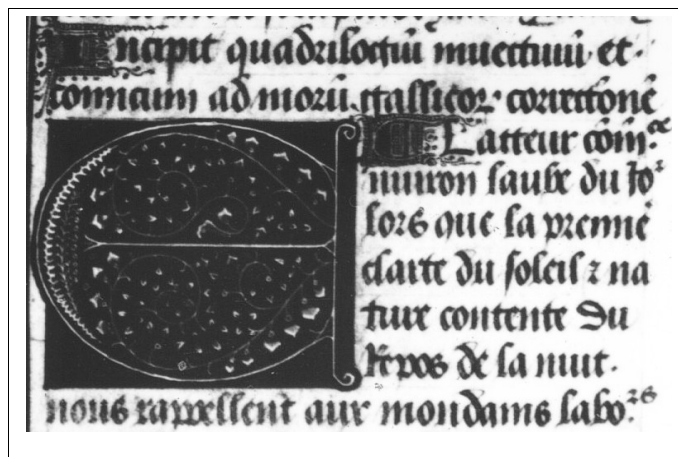 Incipit quadrilogiũ inuectiuũ et
comicum ad morũ gallicoꝝ correctionẽ
Lacteur com̃ce
Enuiron laube du Joʳ
lors que la premiẽ
clarte du soleil ⁊ na
ture contente du
Repos de la nuit.
nous rappellent aux mondains laboʳˢ